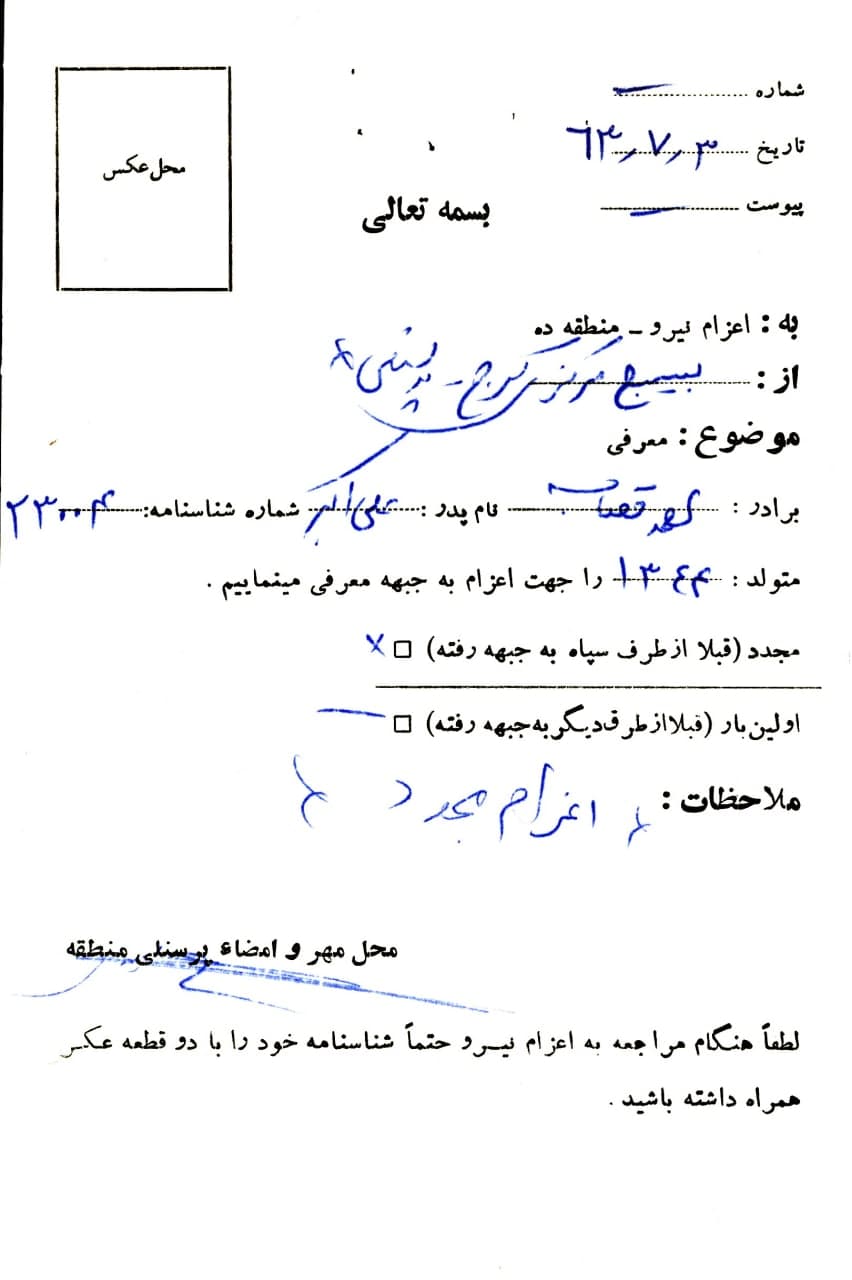 شماره ــ
محل عکس
تاریخ ۶۳٫۷٫۳
پیوست ــ
بسمه تعالی
به : اعزام نیرو ـ منطقه ده
از : بسیج مرکزی کرج ـ
موضوع : معرفی
برادر : قصاب نام پدر : علی اکبر شماره شناسنامه: ۲۳۰۰۴
متولد : ۱۳۴۴ را جهت اعزام به جبهه معرفی مینماییم .
مجدد (قبلا از طرف سپاه به جبهه رفته) □ x
اولین بار (قبلا از طرق دیگر به جبهه رفته) □ ــ
ملاحظات : اعزام مجدد
محل مهر و امضاء پرسنلی منطقه
لطفاً هنگام مراجعه به اعزام نیرو حتماً شناسنامه خود را با دو قطعه عکس
همراه داشته باشید .